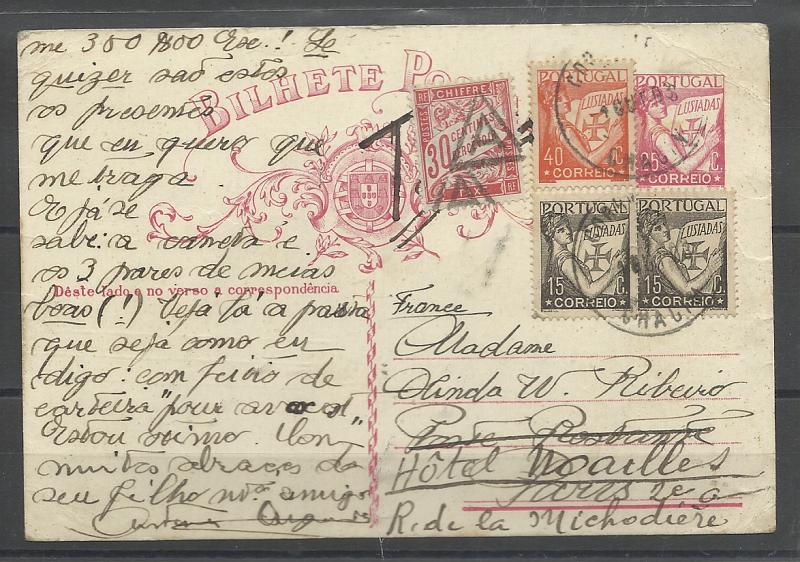 me 300 $00 Esc.! Se
quizer são estos
os presentes
que eu quero que
me traga
E já se
sabe: a caneta e
os 3 pares de meias
boas (!) Veja lá a pasta
que seja como eu
digo: com feitio de
carteira "pour avocat"
Estou ótimo. Com
muitos abraços do
seu filho mto amigo
BILHETE PO
Dêste lado e no verso a correspondência
T
RF CHIFFRE
POSTES
30 CENTIMES
A PERCEVOIR
TAXE RF
PORTUGAL
LUSIADAS
40 C.
CORREIO
PORTUGAL
LUSIADAS
25 C.
CORREIO
PORTUGAL
LUSIADAS
15 C.
CORREIO
PORTUGAL
LUSIADAS
15 C.
CORREIO
France
Madame
Olinda W. Ribeiro
Poste Restante
Hôtel Noailles
Paris 2e
R. de la Michodière